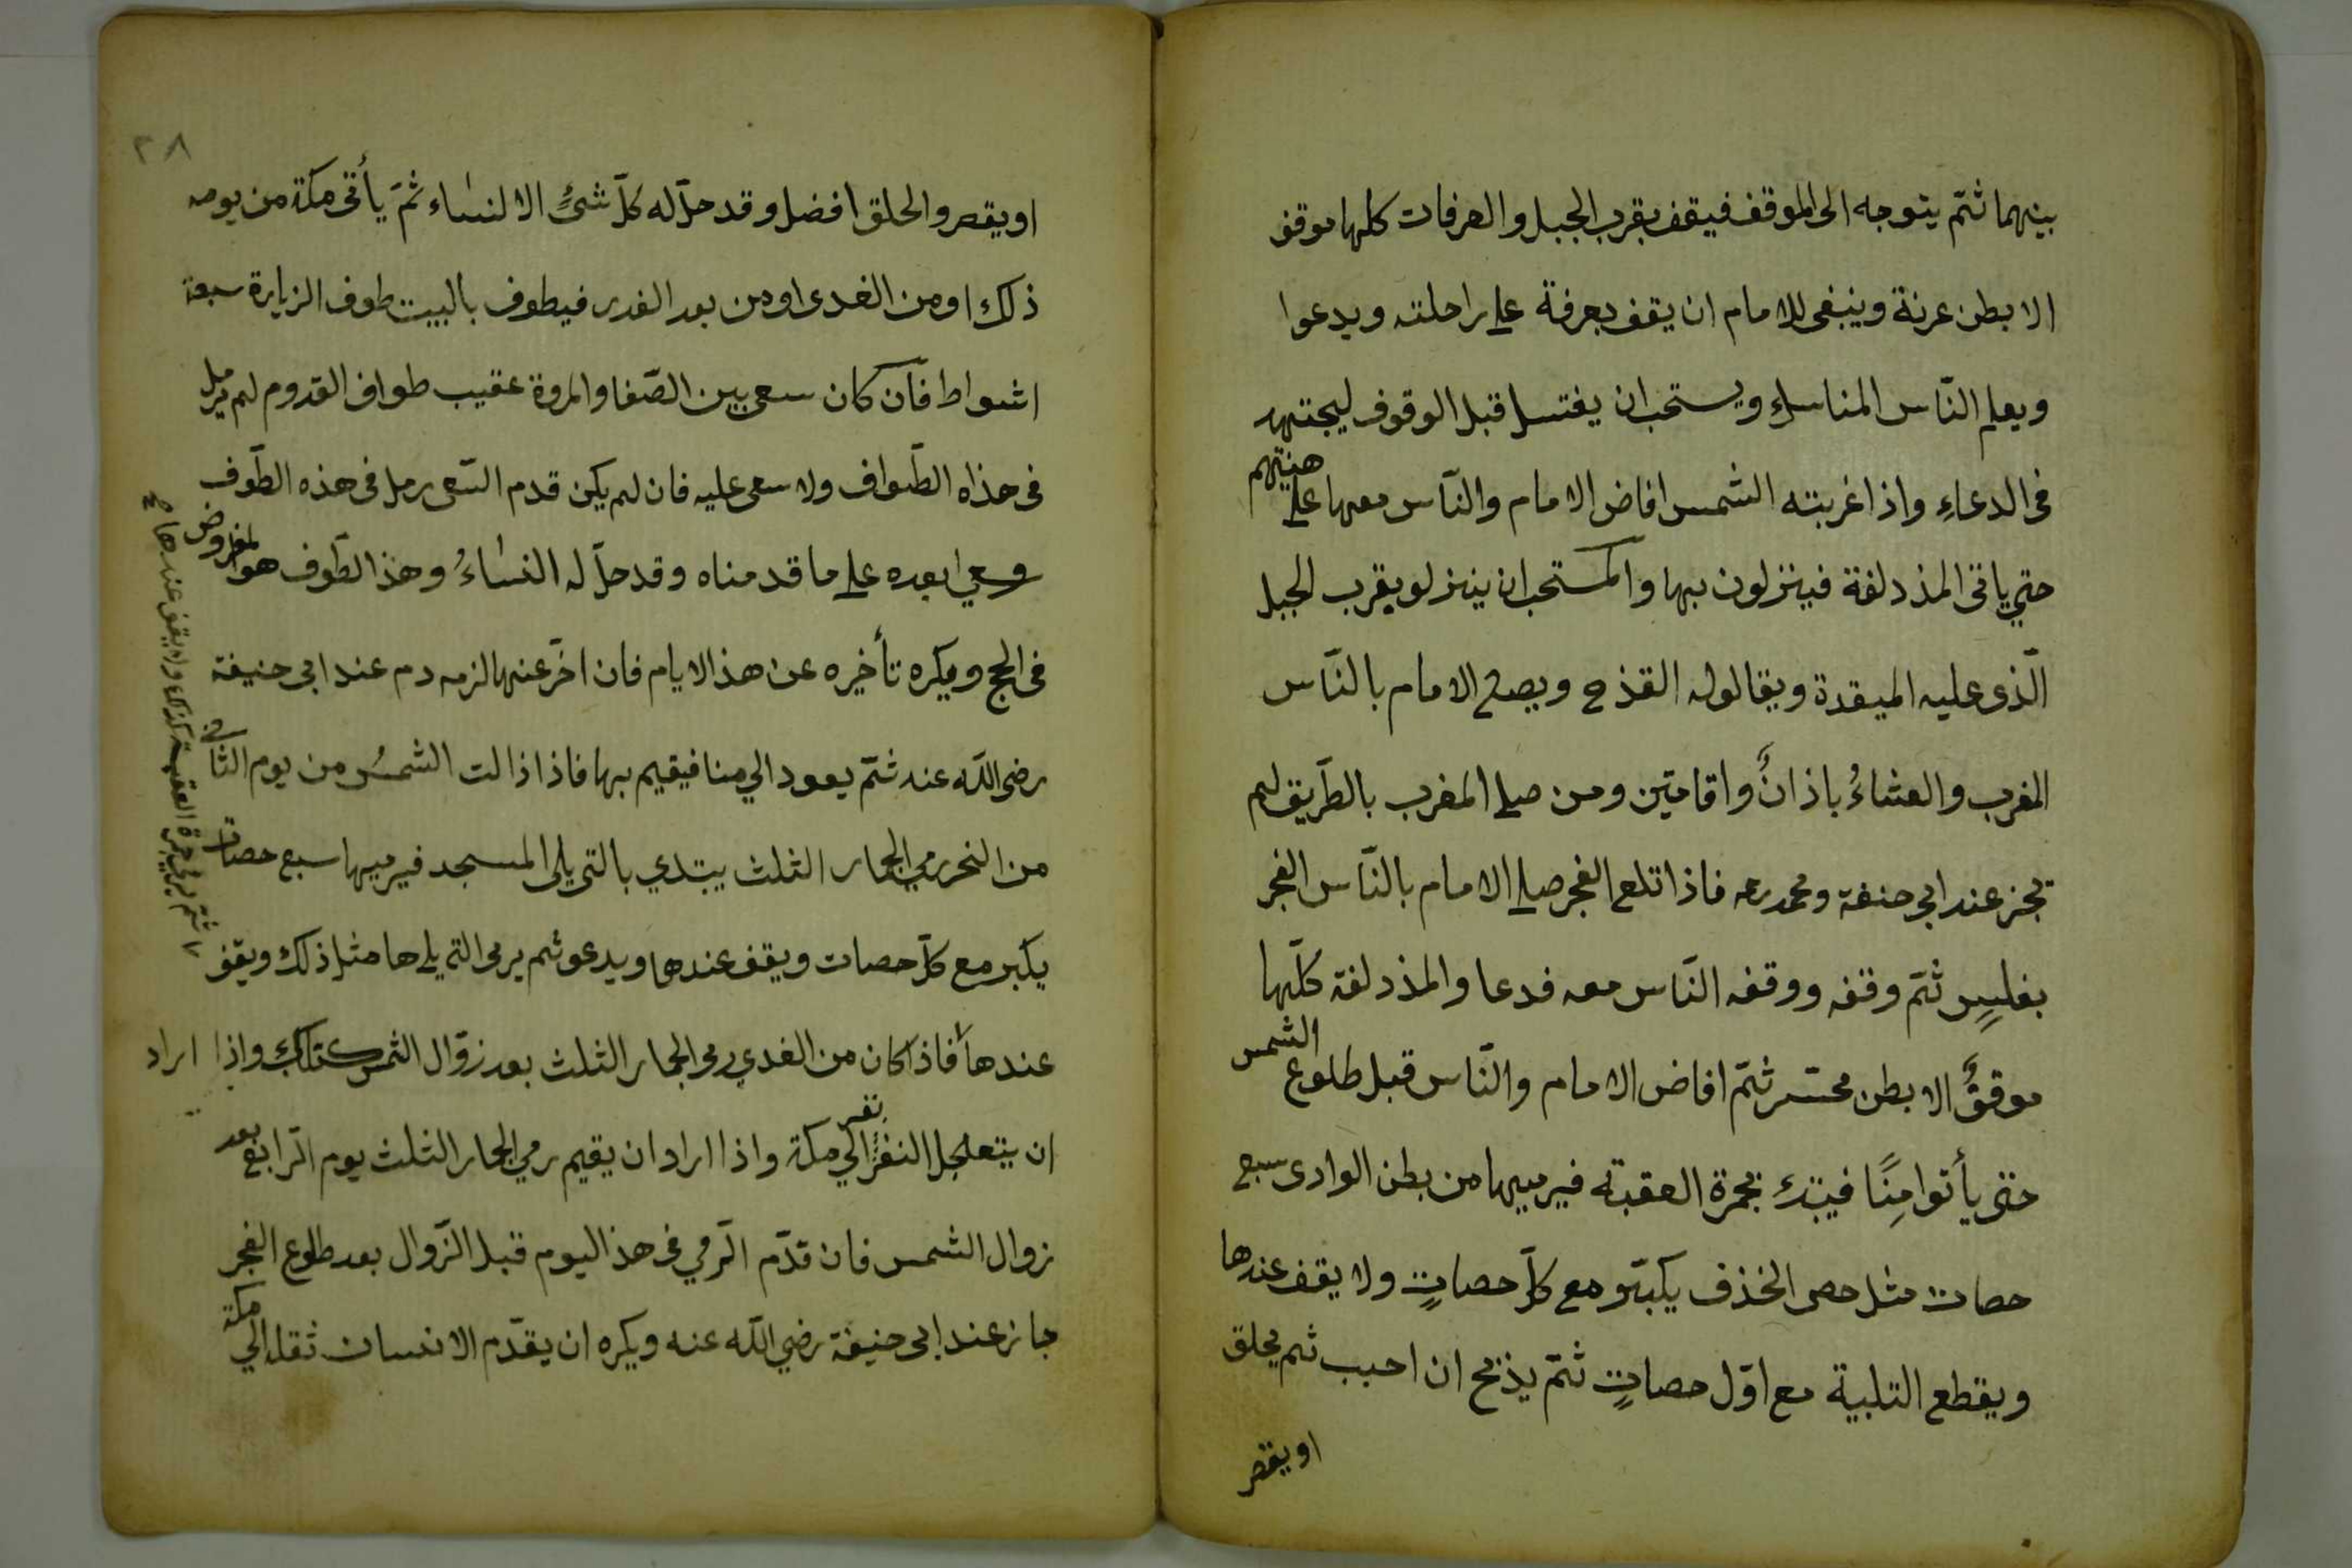 بينهما ثمّ يتوجه الى الموقف فيقف بقرب الجبل والعرفات كلها موقف
الا بطن عرنة وينبغى للامام ان يقف بعرفة على راحلته ويدعوا
ويعلم النّاس المناسك ويستحب ان يغتسل قبل الوقوف ليجتهد
فى الدعاءِ واذا غربته الشمس افاض الامام والنّاس معها على هنيتهم
حتى ياتى المذدلفة فينزلون بها والمستحب ان ينزلو بقرب الجبل
الّذى عليه الميقدة ويقالوله القذح ويصلى الامام بالنّاس
المغرب والعشاءُ باذانٌ واقامتين ومن صلى المغرب بالطّريق لم
تجز عند ابى حنفة ومحمد رحه فاذا تلع الفجر صلى الامام بالنّاس الفجر
بغليسٍ ثمّ وقفه ووقفه النّاس معه فدعا والمذدلفة كلّها
موقفٌ الا بطن محتسر ثمّ افاض الامام والنّاس قبل طلوع الشمس
حتى يأتوا مِنًا فيبتدء بجمرة العقبة فيرميها من بطن الوادى سبع
حصات مثل حصى الخذف يكبّر مع كلّ حصاتٍ ولا يقف عندها
ويقطع التلبية مع اوّل حصاتٍ ثمّ يذبح ان احبب ثم يحلق
او يقصر
٣٨
او يقصر والحلق افضل وقد حلّ له كلّ شئٍ الا لنساء ثمّ يأتى مكة من يومه
ذلك او من الغدى او من بعد الغدى فيطوف بالبيت طوف الزيارة سبعة
اشواط فان كان سعى بين الصّفا والمروة عقيب طواف القدوم لم يرمل
فى هذاه الطّواف ولا سعى عليه فان لم يكن قدم السّعى رمل فى هذه الطّوف
وسعى بعده على ما قدمناه وقد حلّ له النساءُ وهذا الطّوف هو المفروض
فى الحج ويكره تأخيره عن هذ الايام فان اخّر عنها لزمه دم عند ابى حنيفة
رضى اللّه عنه ثمّ يعود الى منا فيقيم بها فاذا ذالت الشمسُ من يوم الثانى
من النحر رمى الجمار الثلث يبتدي بالتى يلى المسجد فيرميها سبع حصات
يكبر مع كلّ حصات ويقف عندها ويدعو ثم يرمى التى يلها مثل ذلك ويقف
عندها فاذا كان من الغدي رمى الجمار الثلث بعد زوال الشمس كذلك واذا اراد
ان يتعلجل النفر نفر الى مكة واذا اراد ان يقيم رمي الجمار الثلث يوم الرّابع بعد
زوال الشمس فان قدّم الرّمي فى هذ اليوم قبل الزّوال بعد طلوع الفجر
جاز عند ابى حنيفة رضي اللّه عنه ويكره ان يقدّم الانسان ثقله الى مكة
ثمّ يرمى جمرة العقبة كذلك ولا يقف عندها صح